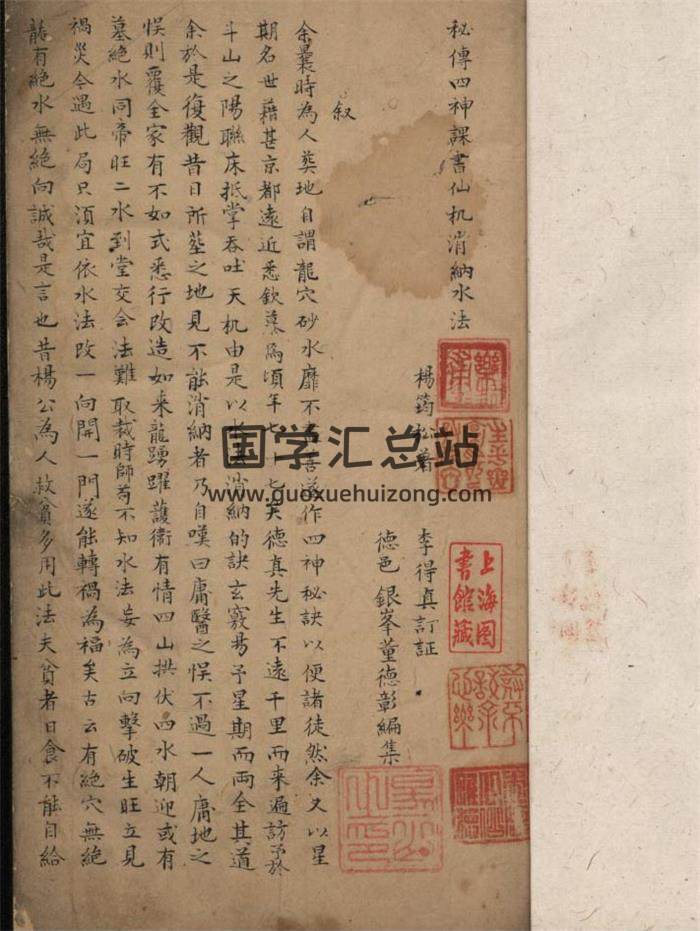 秘傳四神課書仙机消納水法
楊筠松著
李得真訂証
德邑銀峯董德彰編集
叙
余曩時為人葬地自謂龍穴砂水靡不善遂作四神秘訣以便諸徒然余又以星
期名世藉甚京都遠近悉欽慕焉頃年七十七矣德真先生不遠千里而來遍訪予於
斗山之陽聯床抵掌吞吐天机由是以水法消納的訣玄竅易予星期而两全其道
余於是復觀昔日所塟之地見不能消納者乃自嘆曰庸醫之悮不過一人庸地之
悮則覆全家有不如式悉行改造如来龍踴躍䕶衛有情四山拱伏四水朝迎或有
墓絶水同帝旺二水到堂交会法難取裁時師苟不知水法妄為立向擊破生旺立見
禍災今遇此局只須宜依水法改一向開一門遂能轉禍為福矣古云有絶穴無絶
龍有絶水無絶向誠哉是言也昔楊公為人救貧多用此法夫貧者日食不能自給
上海图
書館藏
国学汇总站
www.guoxuehuizong.com